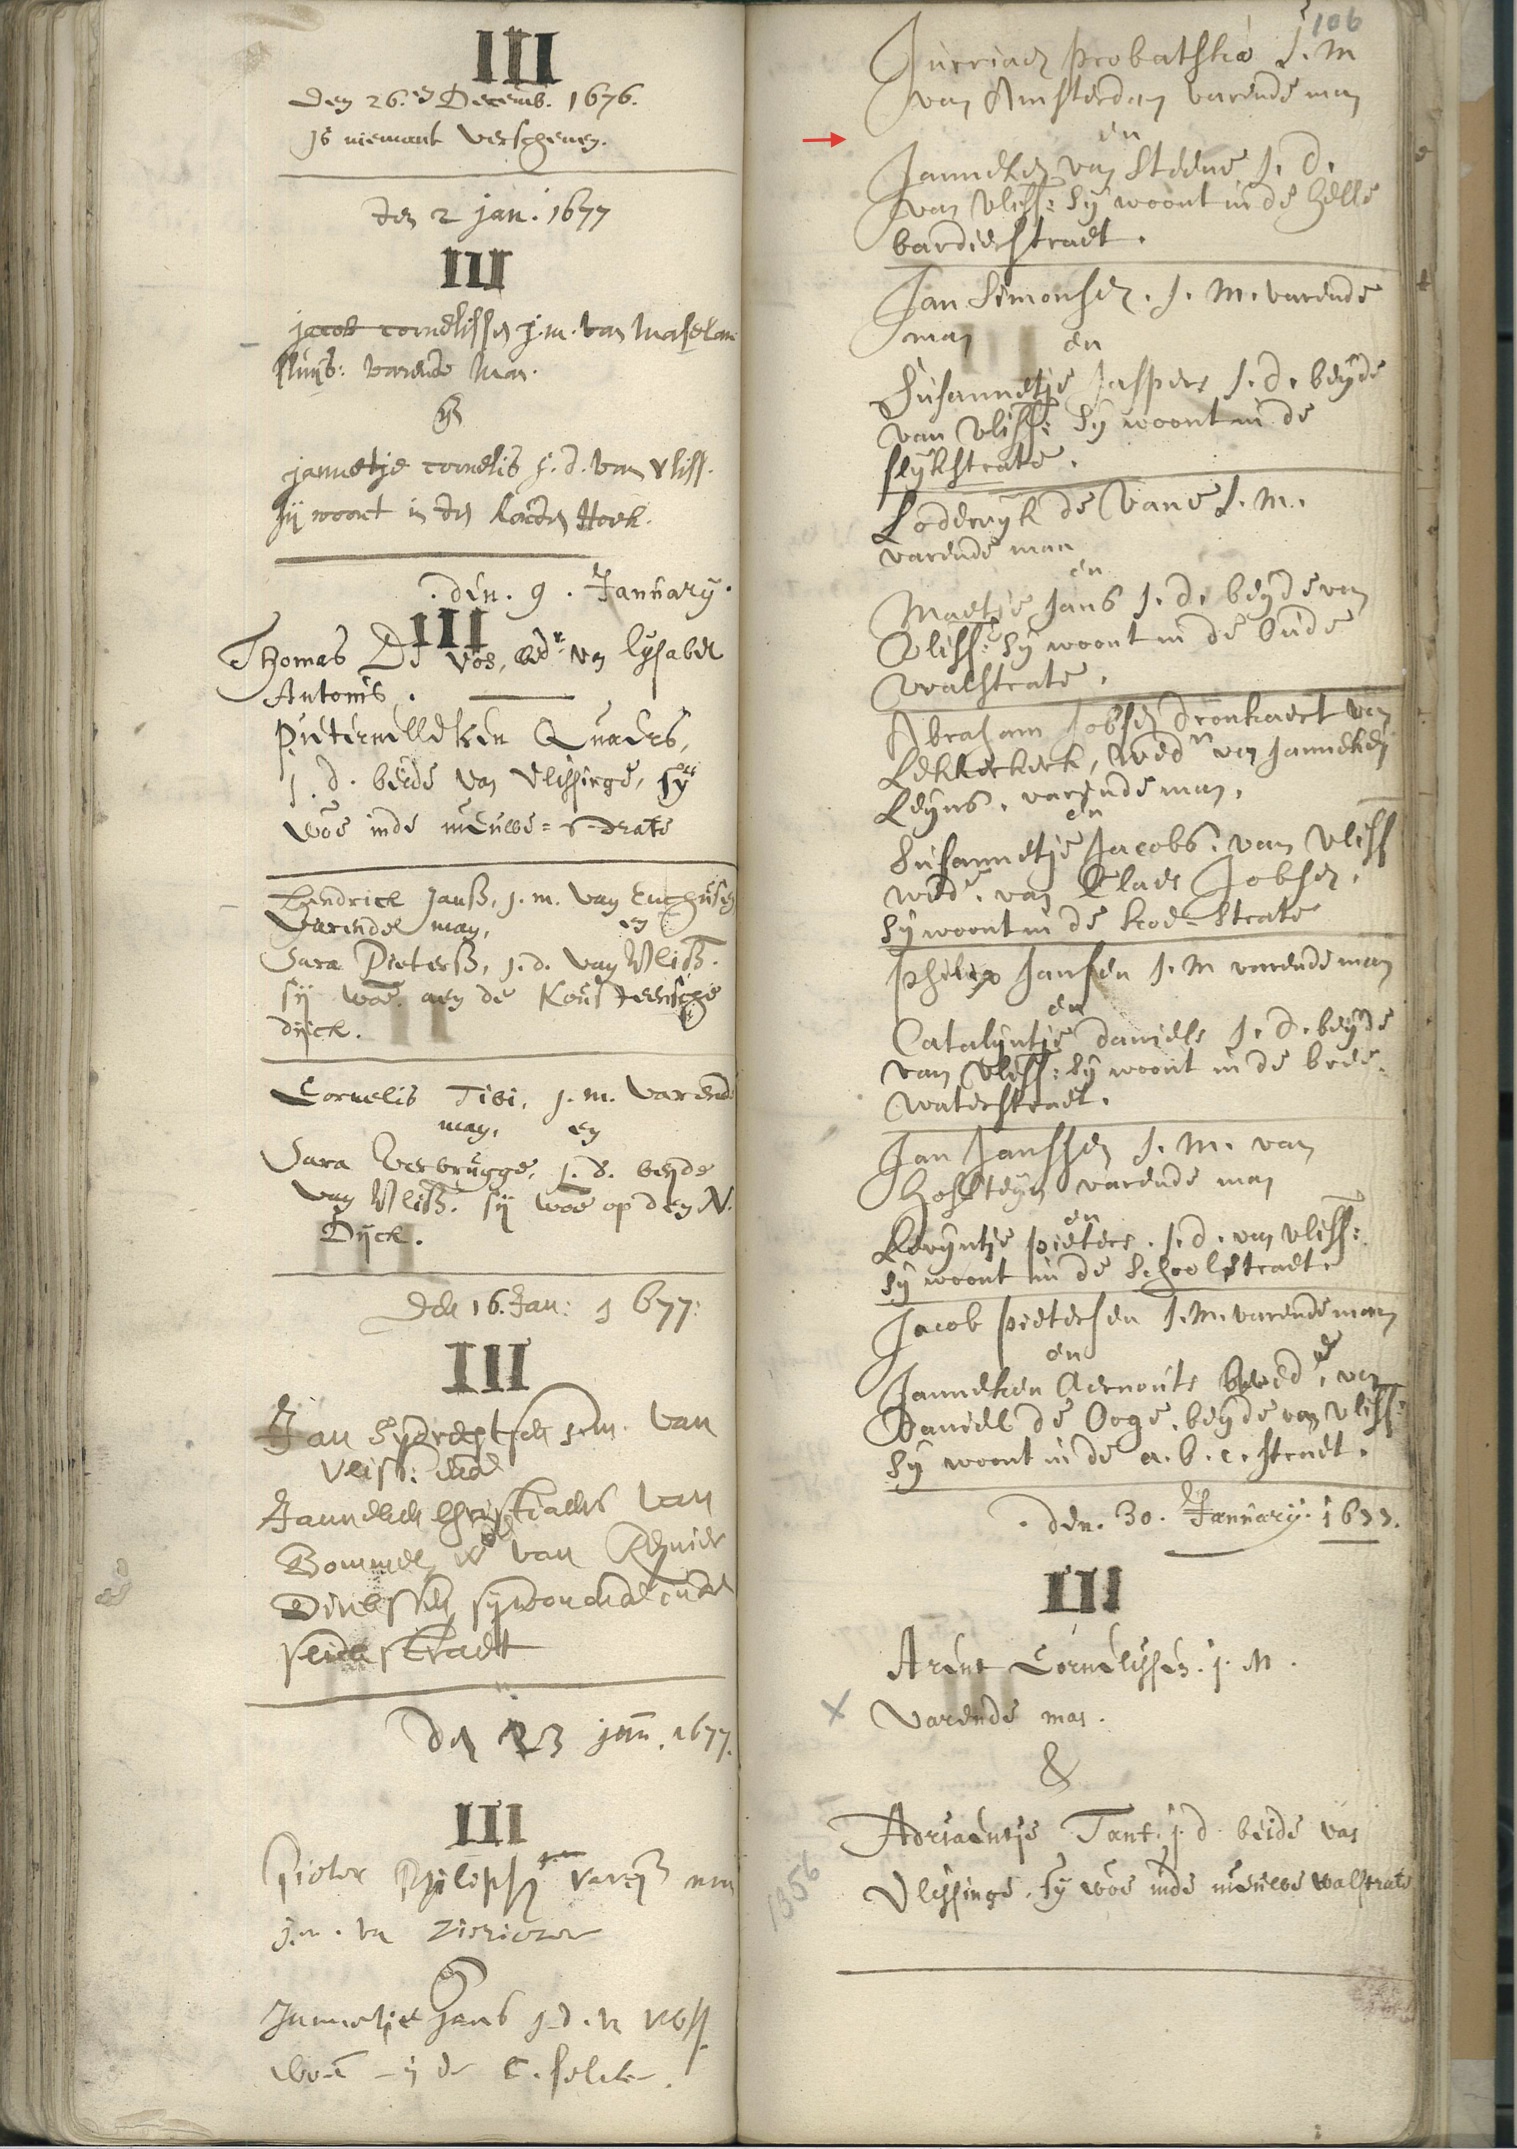 III
Den 26.en Decemb. 1676.
Is niemant verschenen.
den 2 jan. 1677
III
jacob cornelissen j.m. van Maselan
sluijs: varende Man.
en
jannetje cornelis j.d. van vliss.
sij woont in den Houck.
den. 9. January.
III
Thomas De Vos, wedr. van lysabet
Antonis.
Pieternelleken Quaers,
j. d. beide van vlissinge, sy
woe inde nieuwe-strate
Hendrick Janss, j.m. van Enchusen
Varende man, en
Sara Pieterss, j.d. van Vliss.
sij woe. aen de Kousteensche
dijck.
III
Cornelis Tibi, j.m. varend
man, en
Sara Verbrugge, j.d. beijde
van Vliss. sij woe op den N.
Dijck.
III
Den 16. Jan: 1677:
III
Jan j.m. van
Vliss: ende
Janneken Christiaens van
Bommel, wed van Reynier
Dircksen sij woonende inde
straet
den 23 jan. 1677.
III
Pieter Philipsen varen man
j.m. van Zierickzee
Jannetje Jans j.d. v. vliss.
woont in de
106
Jurriaen probatske J.M
van Amsterdam varende man
en
Janneken van Steene J.d.
van vliss: sy woont in de helle
bardierstraet.
Jan Simonsen. J.M. varende
man
en
Susannetje Jaspers J.d. beyde
van vliss: sy woont in de
slykstrate.
Lodewyk de Vane J.M.
varende man
en
Maetje Jans J.d. beyde van
Vliss: sy woont in de Oude
walstrate.
Abraham Jobsen dronkaert van
Lekkerkerk, wedr van Janneken
Leyns, varende man,
en
Susannetje Jacobs, van vliss
wede. van Claes Jobsen,
sy woont in de koe-strate
Philip Jansen J.M varende man
en
Catalyntje daniels J.d. beyde
van vliss: sy woont in de bree-
waterstraet.
Jan Janssen J.M. van
Holsteyn varende man
en
Levyntje pieters. J.d. van vliss:
sy woont in de Schoolstraet.
Jacob pietersen J.M. varende man
en
Janneken Aernouts wede. van
Daniel de Ooge, beyde van vliss:
sy woont in de a.b.c. straet.
den. 30. January. 1677.
III
Arent Cornelissen. j.M.
X
Varende man.
&
Adriaentje Tant. j.d. beide van
Vlissinge. sy woe inde nieuwe walstrate
1356